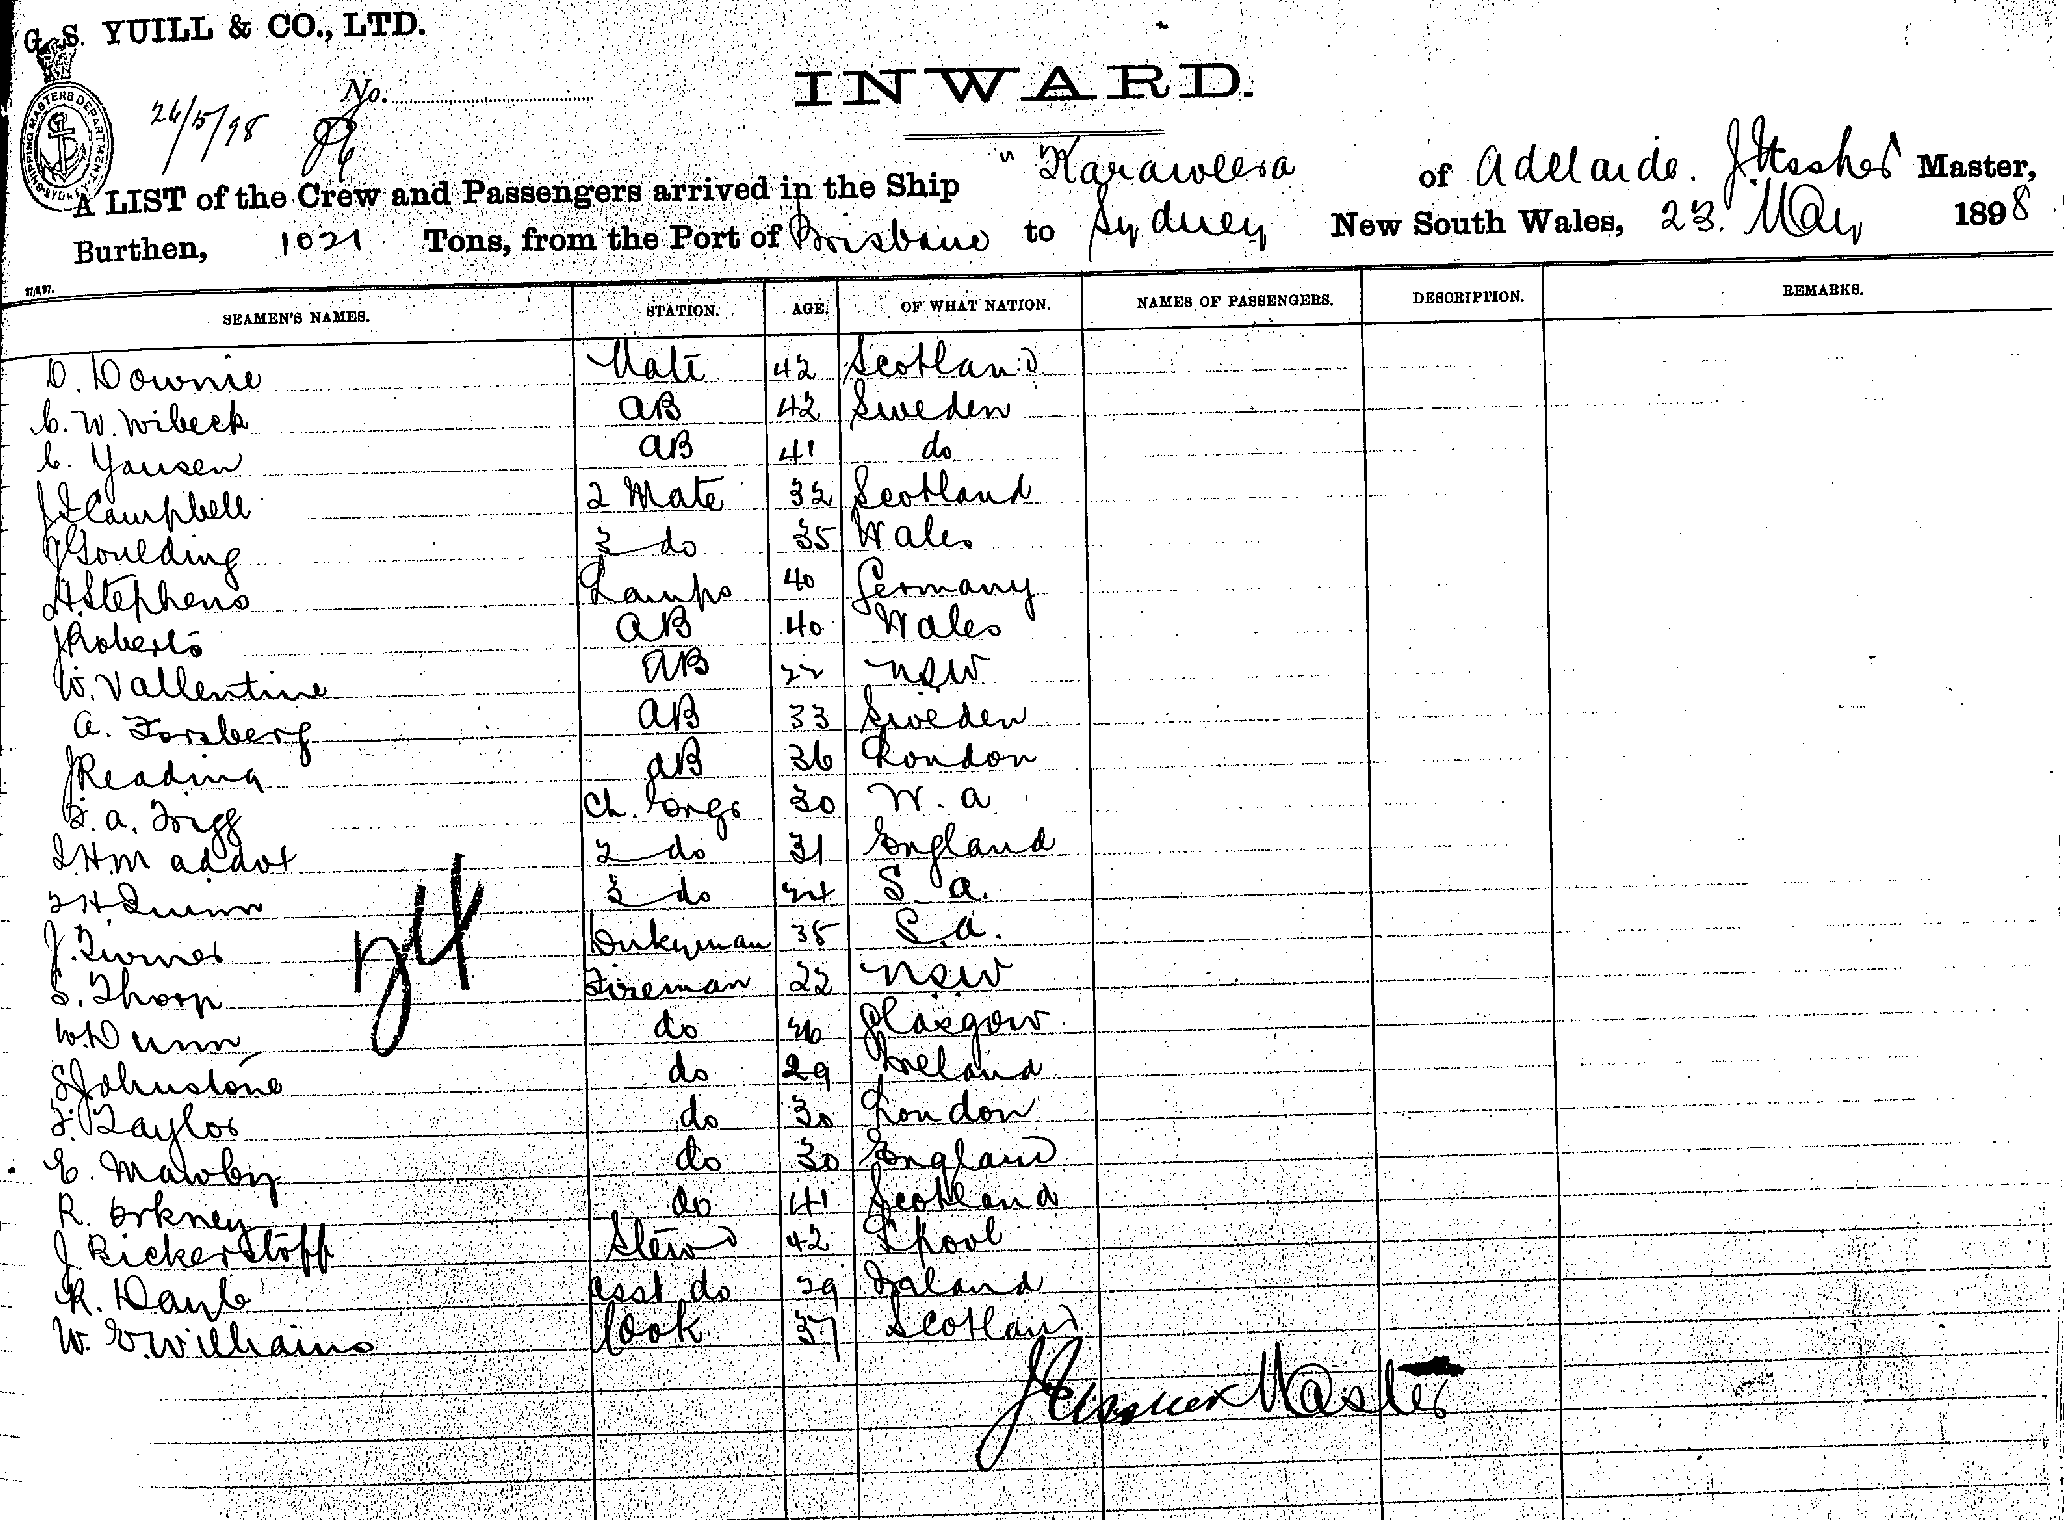 G. S. YUILL & CO., LTD.
No.
INWARD.
26/5/98
SHIPPING MASTERS DEPARTMENT
A LIST of the Crew and Passengers arrived in the Ship "Karaweera of Adelaide. J. Master,
Burthen, 1021 Tons, from the Port of Brisbane to Sydney New South Wales, 23. May 1898
SEAMEN'S NAMES. STATION. AGE. OF WHAT NATION. NAMES OF PASSENGERS. DESCRIPTION. REMARKS.
D. Downie Mate 42 Scotland
C. W. Wibeck AB 42 Sweden
C. Yansen AB 41 do
J Campbell 2 Mate 32 Scotland
J Goulding 3 do 35 Wales
H Stephens Lamps 40 Germany
J Roberts AB 40 Wales
W. Vallentine AB 22 NSW
A. Forsberg AB 33 Sweden
J Reading AB 36 London
F. A. Trigg Ch. Engr 30 W. A
J. H. Maddox 2 do 31 England
T H. Quinn 3 do 24 S. A.
J. Turner Dnkyman 38 S. A.
S. Thorp Fireman 22 NSW
W. Dunn do 26 Glasgow
S Johnstone do 29 Ireland
F. Taylor do 30 London
E. Mawby do 30 England
R. Orkney do 41 Scotland
J Bickerstoff Stewd 42 Lpool
R. Dayle Asst do 29 Ireland
W. E. Williams Cook 37 Scotland
24
Master